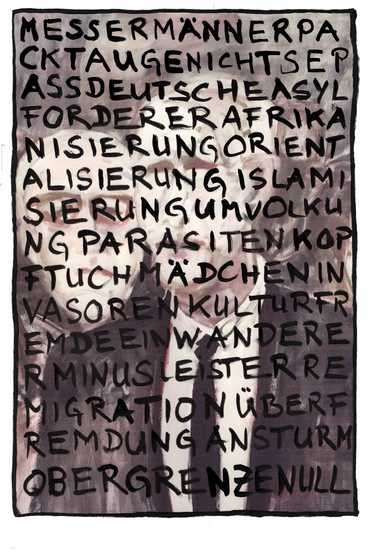 MESSERMÄNNERPA
CKTAUGENICHTSEP
ASSDEUTSCHEASYL
FORDERERAFRIKA
NISIERUNGORIENT
ALISIERUNGISLAMI
SIERUNGUMVOLKU
NGPARASITENKOP
FTUCHMÄDCHENIN
VASORENKULTURFR
EMDEEINWANDERE
RMINUSLEISTERRE
MIGRATIONÜBERF
REMDUNGANSTURM
OBERGRENZENULL